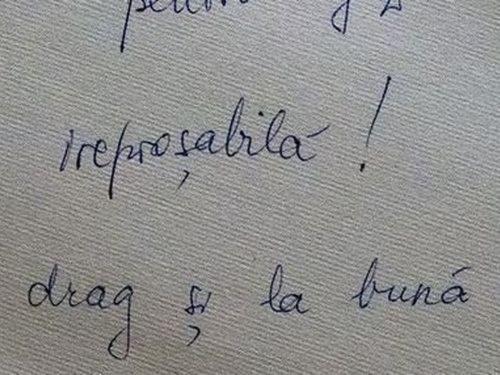 ireproșabilă!
drag și la bună